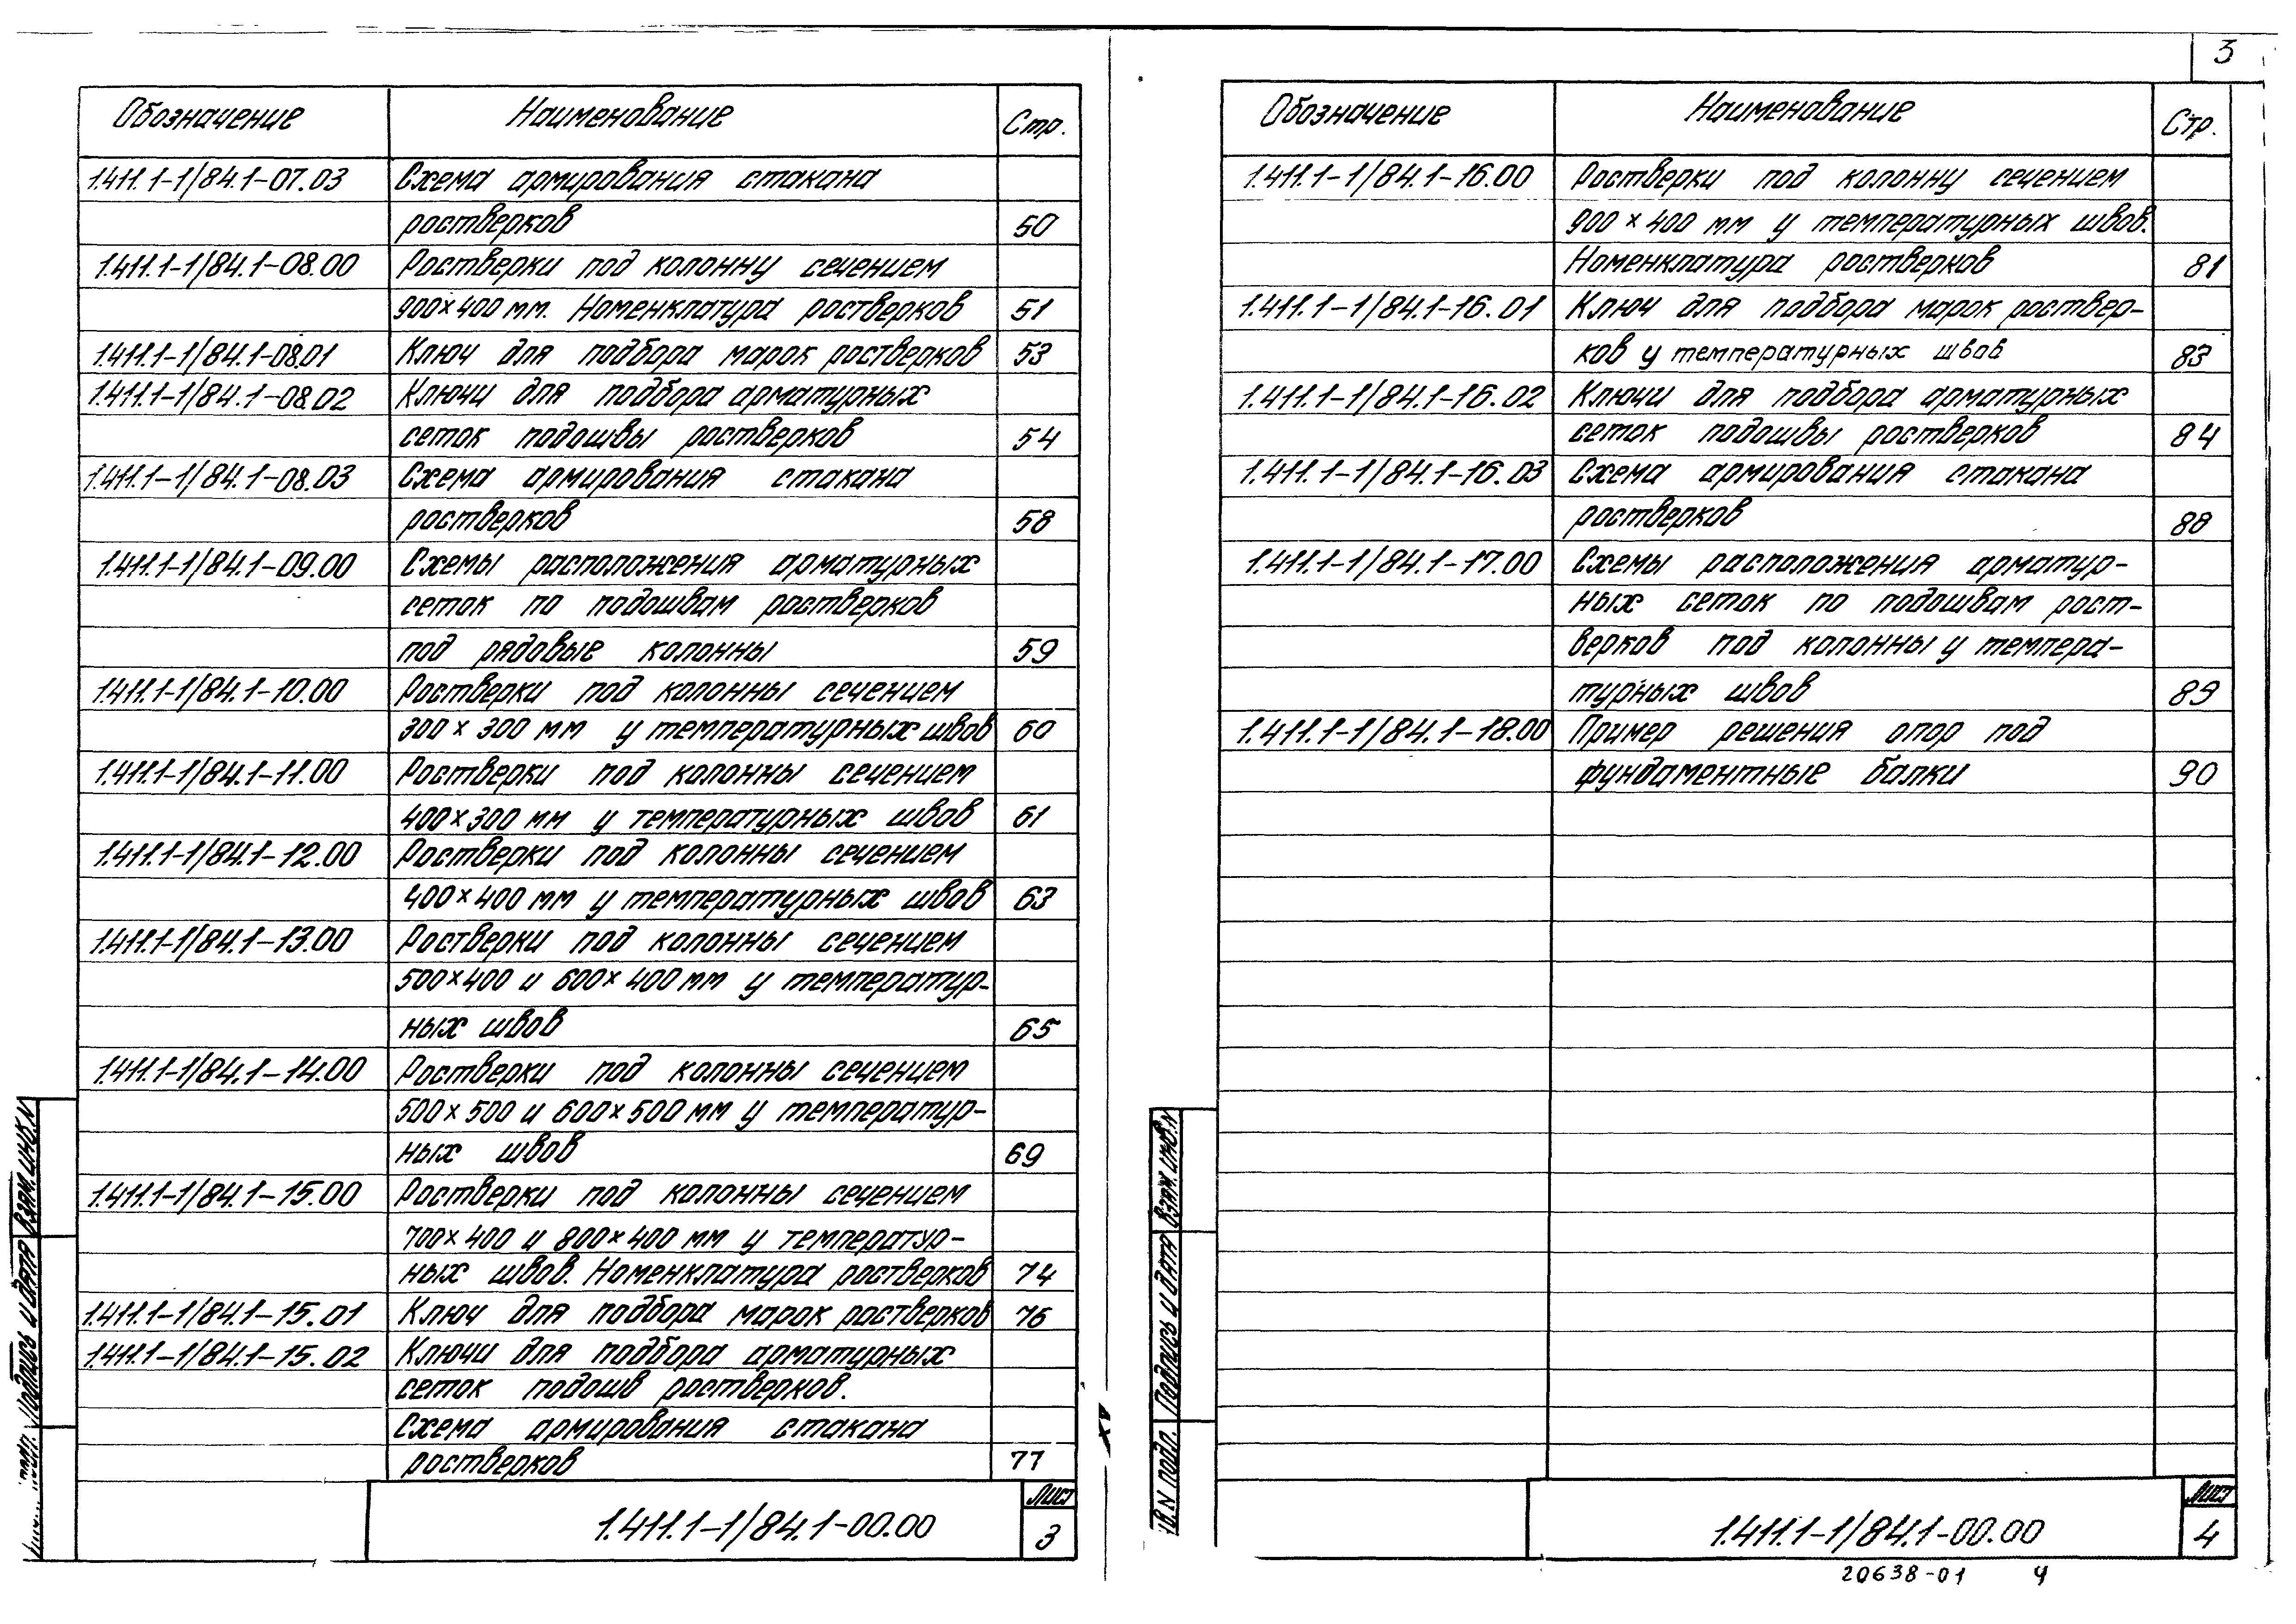 3
Обозначение Наименование Стр.
1.411.1-1/84.1-07.03 Схема армирования стакана
ростверков 50
1.411.1-1/84.1-08.00 Ростверки под колонну сечением
900×400 мм. Номенклатура ростверков 51
1.411.1-1/84.1-08.01 Ключ для подбора марок ростверков 53
1.411.1-1/84.1-08.02 Ключи для подбора арматурных
сеток подошвы ростверков 54
1.411.1-1/84.1-08.03 Схема армирования стакана
ростверков 58
1.411.1-1/84.1-09.00 Схемы расположения арматурных
сеток по подошвам ростверков
под рядовые колонны 59
1.411.1-1/84.1-10.00 Ростверки под колонны сечением
300×300 мм у температурных швов 60
1.411.1-1/84.1-11.00 Ростверки под колонны сечением
400×300 мм у температурных швов 61
1.411.1-1/84.1-12.00 Ростверки под колонны сечением
400×400 мм у температурных швов 63
1.411.1-1/84.1-13.00 Ростверки под колонны сечением
500×400 и 600×400 мм у температур-
ных швов 65
1.411.1-1/84.1-14.00 Ростверки под колонны сечением
500×500 и 600×500 мм у температур-
ных швов 69
1.411.1-1/84.1-15.00 Ростверки под колонны сечением
700×400 и 800×400 мм у температур-
ных швов. Номенклатура ростверков 74
1.411.1-1/84.1-15.01 Ключ для подбора марок ростверков 76
1.411.1-1/84.1-15.02 Ключи для подбора арматурных
сеток подошв ростверков.
Схема армирования стакана
ростверков 77
1.411.1-1/84.1-00.00 Лист
3
Взам. инв. N
Подпись и дата
подл.
Обозначение Наименование Стр.
1.411.1-1/84.1-16.00 Ростверки под колонну сечением
900×400 мм у температурных швов.
Номенклатура ростверков 81
1.411.1-1/84.1-16.01 Ключ для подбора марок роствер-
ков у температурных швов 83
1.411.1-1/84.1-16.02 Ключи для подбора арматурных
сеток подошвы ростверков 84
1.411.1-1/84.1-16.03 Схема армирования стакана
ростверков 88
1.411.1-1/84.1-17.00 Схемы расположения арматур-
ных сеток по подошвам рост-
верков под колонны у темпера-
турных швов 89
1.411.1-1/84.1-18.00 Пример решения опор под
фундаментные балки 90
1.411.1-1/84.1-00.00 Лист
4
Взам. инв. N
Подпись и дата
в. N подл.
20638-01 4